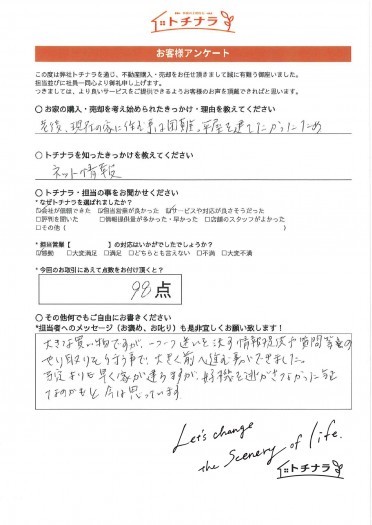 トチナラ
お客様アンケート
この度は弊社トチナラを通じ、不動産購入・売却をお任せ頂きまして誠に有難う御座いました。
担当並びに社員一同心より御礼申し上げます。
つきましては、より良いサービスをご提供できるようお客様のお声を頂戴できればと思います。
○ お家の購入・売却を考え始められたきっかけ・理由を教えてください
老後、現在の家に住む事は困難。平屋を建てたかったため
○ トチナラを知ったきっかけを教えてください
ネット情報
○ トチナラ・担当の事をお聞かせください
*なぜトチナラを選ばれましたか?
☑会社が信頼できた ☑担当営業が良かった ☑サービスや対応が良さそうだった
□評判を聞いた □情報提供量が多かった・早かった □店舗のスタッフがよかった
□その他(
*担当営業【 】の対応はいかがでしたでしょうか?
☑感動 □大変満足 □満足 □どちらとも言えない □不満 □大変不満
*今回のお取引にあえて点数をお付け頂くと?
98点
○ その他何でもご自由にお書きください
*担当者へのメッセージ(お褒め、お叱り)も是非宜しくお願い致します!
大きな買い物ですが、一つ一つ迷いを決す情報提供や質問等
やり取りを行う事で、大きく前へ進む事ができました。
予定よりも早く家が建ちますが、好機を逃がさなかった
なのかもと今は思っています
Let's change
the Scenery of life.
トチナラ